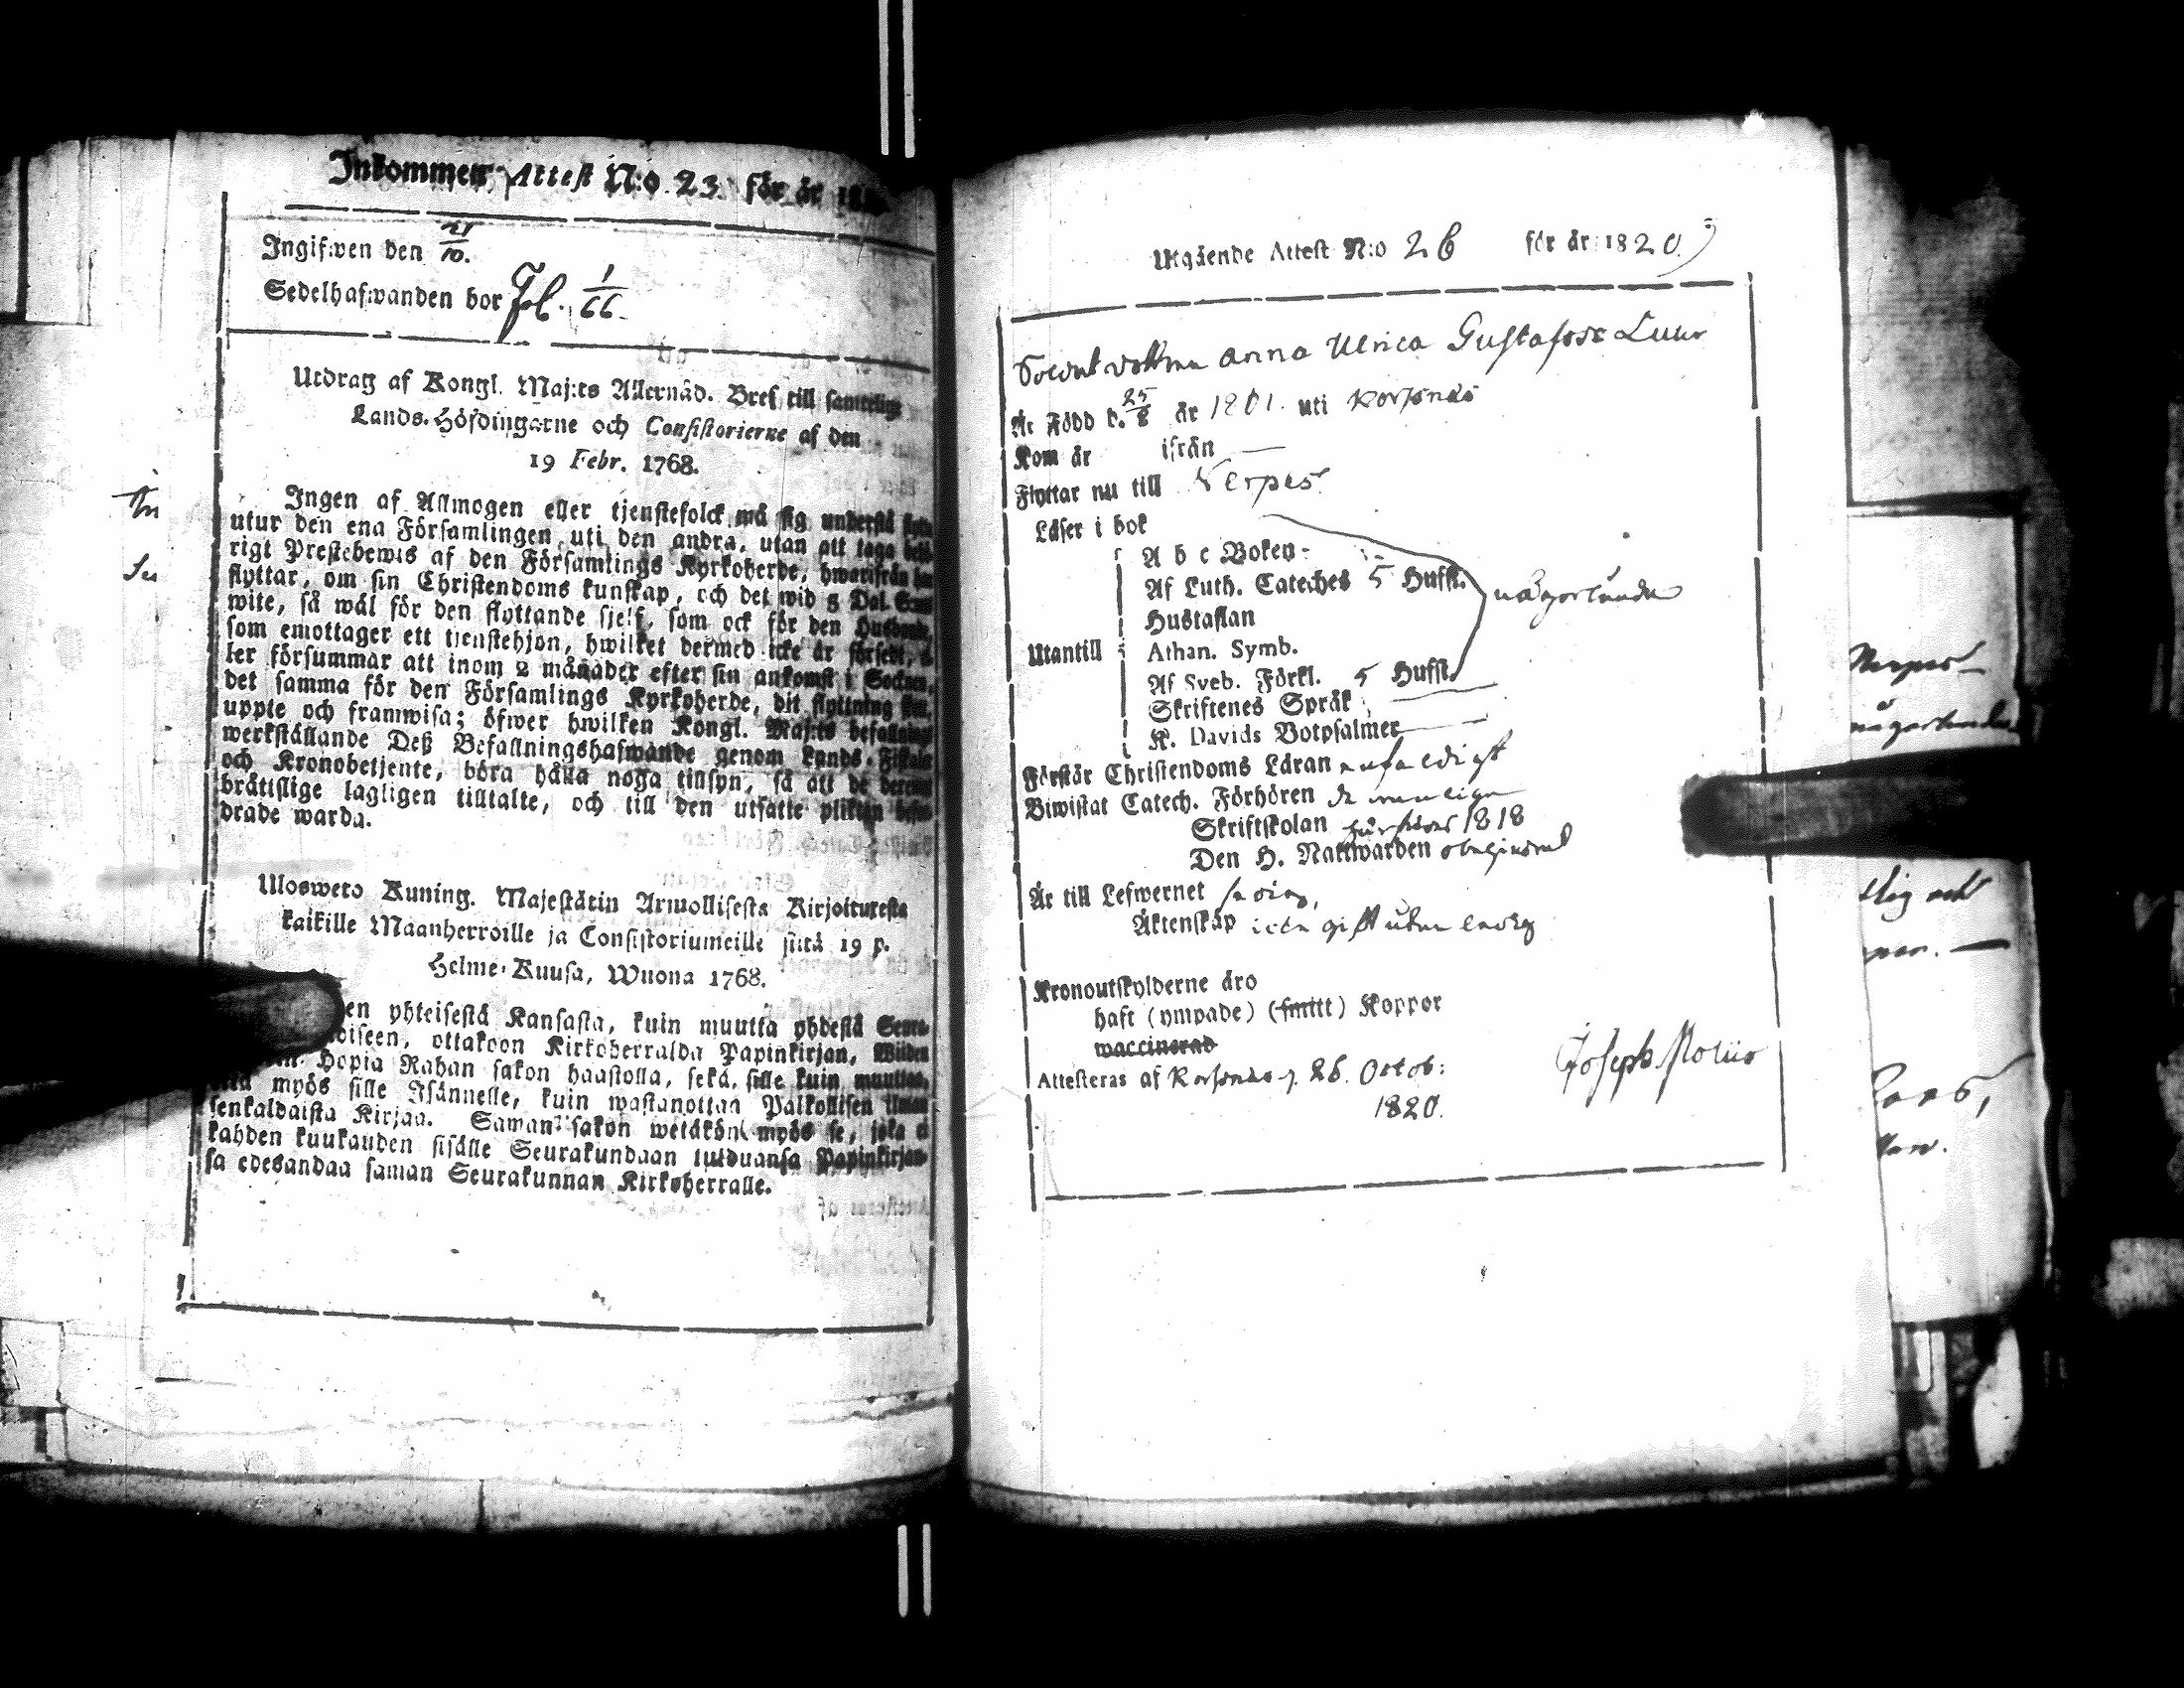 Inkommen Attest N:o 23. för år 18
Ingifwen den 21/10.
Sedelhafwanden bor Fol. 1/66.
Utdrag af Kongl. Maj:ts Allernåd. Bref till samtelige
Lands-Höfdingarne och Consistorierne af den
19 Febr. 1768.
Ingen af Allmogen eller tjenstefolck må sig understå
utur den ena Församlingen uti den andra, utan att taga
rigt Prestebewis af den Församlings Kyrkoherde, hwarifrån
flyttar, om sin Christendoms kunskap, och det wid 5 Dal.
wite, så wäl för den flyttande sjelf, som ock för den Husbonde,
som emottager ett tjenstehjon, hwilket dermed icke är försedt,
ler försummar att inom 2 månader efter sin ankomst i Socknen,
det samma för den Församlings Kyrkoherde, dit flyttning
uppte och framwisa; öfwer hwilken Kongl. Maj:ts befallning
werkställande Deß Befallningshafwande genom Lands-Fiskaler
och Kronobetjente, böra hålla noga tillsyn, så att de deremot
brättslige lagligen tilltalte, och till den utsatte plikten
drade warda.
Ulosweto Kuning. Majestätin Armollisesta Kirjoituresta
kaikille Maanherroille ja Consistoriumeille siitä 19 p.
Helme-Kuusa, Wuona 1768.
en yhteisestä Kansasta, kuin muutta yhdestä Seura-
oiseen, ottakoon Kirkoherralda Papinkirjan, Wiiden
Hopia Rahan sakon haastolla, sekä sille kuin muuttaa,
myös sille Isännelle, kuin wastanottaa Palkollisen ilman
senkaldaista Kirjaa. Saman sakon wetäkön myös se, joka ei
kahden kuukauden sisälle Seurakundaan tulduansa Papinkirjan-
sa edesandaa saman Seurakunnan Kirkoherralle.
Utgående Attest N:o 26 för år 1820
Anna Ulrica Gustafsdr
Är Född d. 25/8 år 1801. uti Korsnäs
Kom år ifrån
Flyttar nu till Nerpes
Läser i bok
A b c Boken
Af Luth. Cateches 5 Hufst. någorlunda
Hustaflan
Utantill Athan. Symb.
Af Sveb. Förkl. 5 Hufst.
Skriftenes Språk
K. Davids Botpsalmer
Förstår Christendoms Läran enfaldigt
Biwistat Catech. Förhören
Skriftskolan 1818
Den H. Nattwarden obehindrad
Är till Lefwernet
Äktenskap icke gift utan ledig
Kronoutskylderne äro
haft (ympade) (smitt) Koppor
waccinerad
Attesteras af Korsnäs d. 26. Octob:
1820.
Joseph
Nerpes
någorlunda